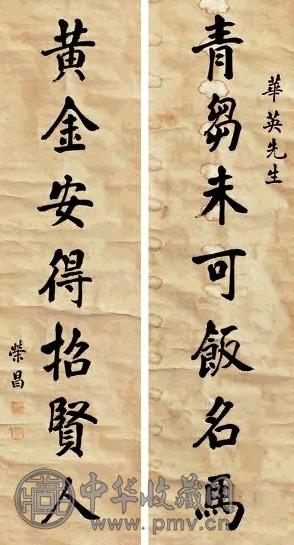 華英先生
青芻未可飯名馬
黃金安得招賢人
榮昌
中华收藏网
www.pmv.cn